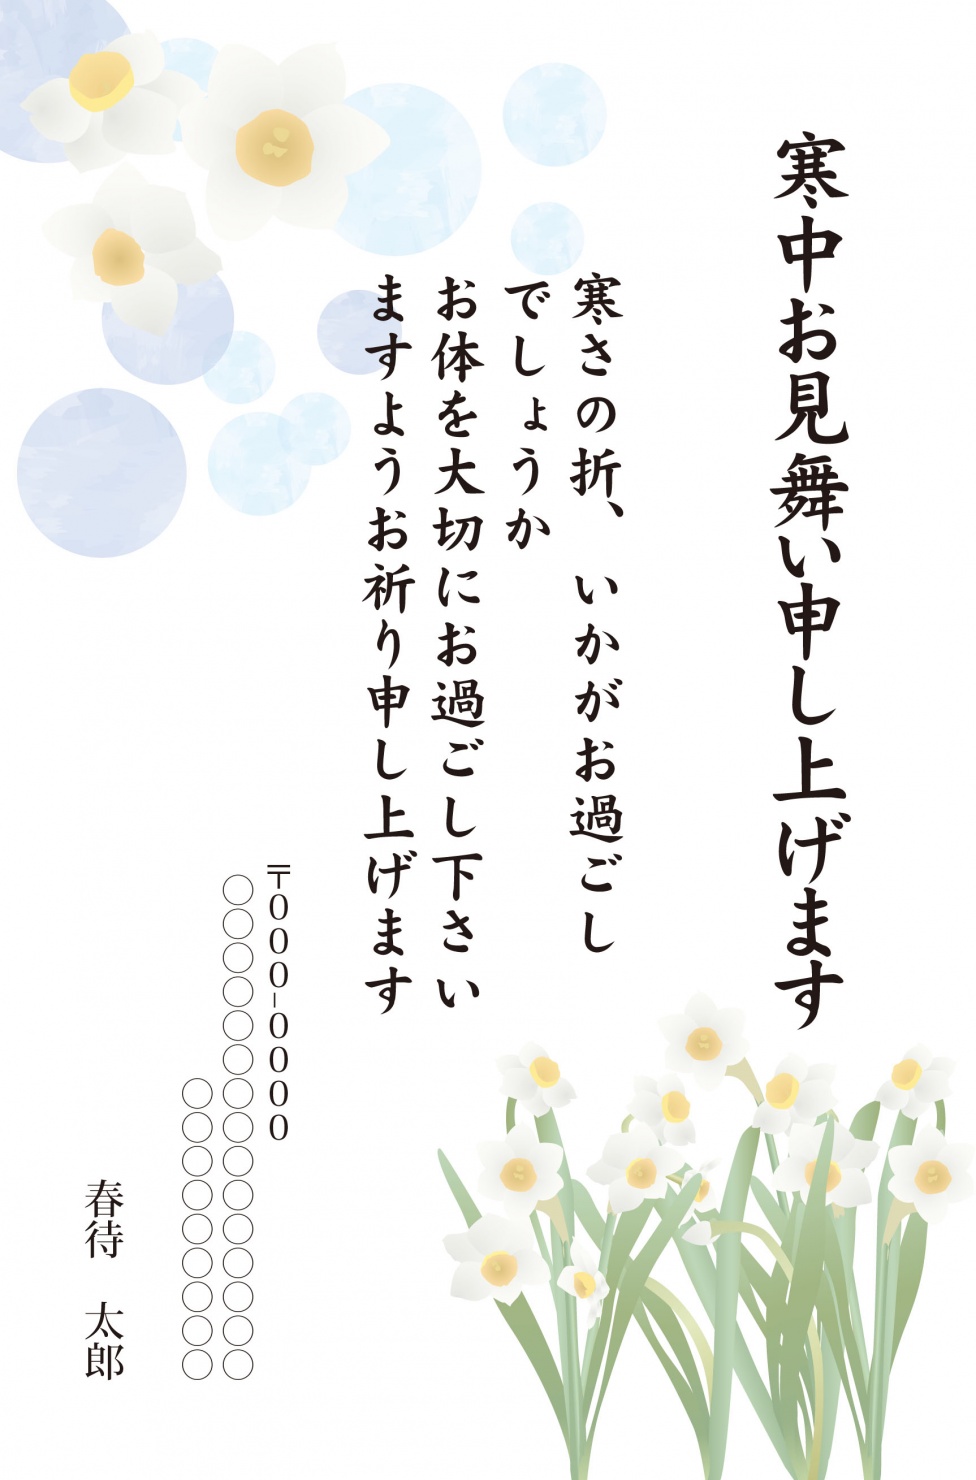 寒中お見舞い申し上げます
寒さの折、いかがお過ごし
でしょうか
お体を大切にお過ごし下さい
ますようお祈り申し上げます
〒000-0000
○○○○○○○○○○○○○○○
○○○○○○○○○
春待　太郎